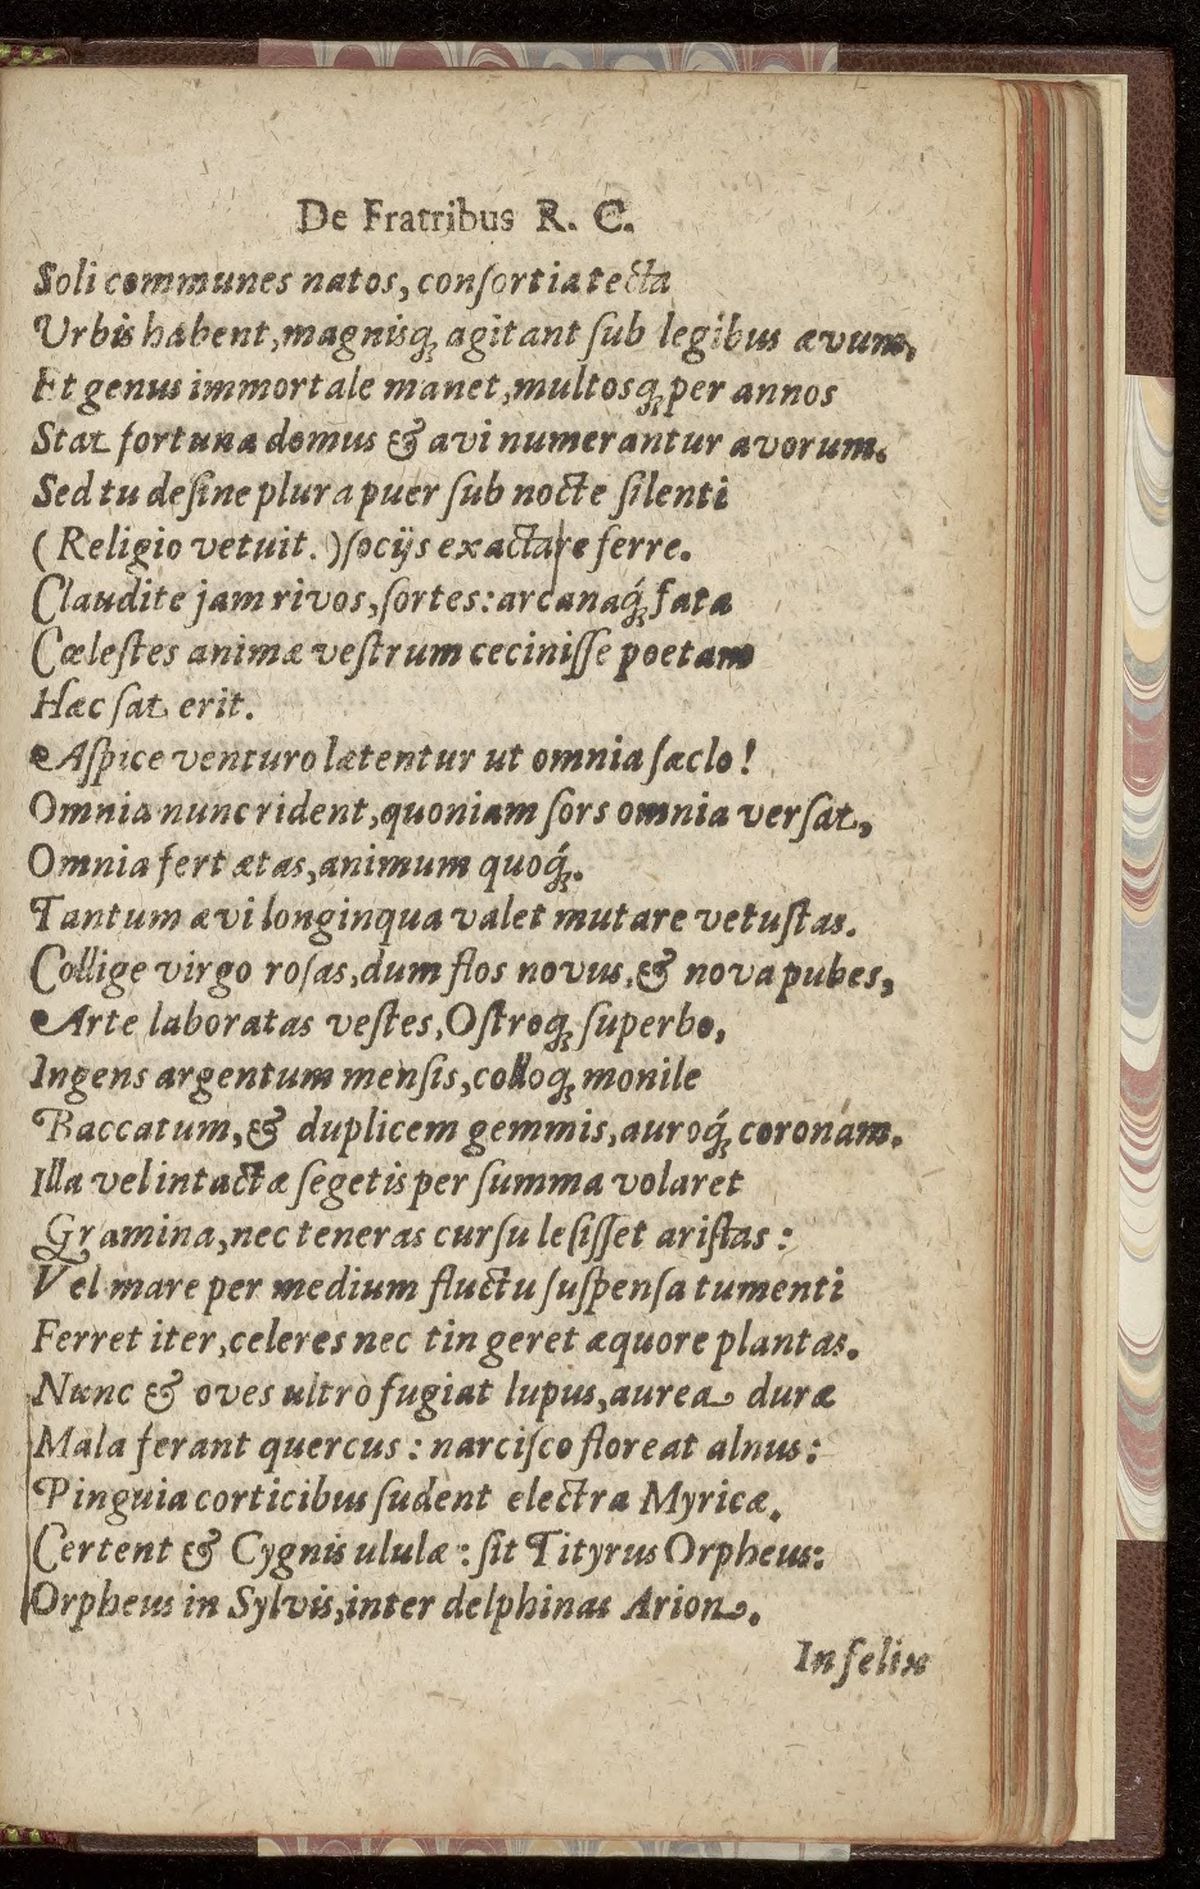 De Fratribus R. C.
Soli communes natos, conſortia tecta
Urbis habent, magnisq́; agitant ſub legibus ævum,
Et genus immortale manet, multosq́; per annos
Stat fortuna domus & avi numerantur avorum.
Sed tu deſine plura puer ſub nocte ſilenti
(Religio vetuit.) ſocijs exacta referre.
Claudite jam rivos, ſortes: arcanaq́; fata
Cœleſtes animæ veſtrum ceciniſſe poetam
Hæc ſat erit.
Aſpice venturo lætentur ut omnia ſæclo!
Omnia nunc rident, quoniam ſors omnia verſat,
Omnia fert ætas, animum quoq́;.
Tantum ævi longinqua valet mutare vetuſtas.
Collige virgo roſas, dum flos novus, & nova pubes,
Arte laboratas veſtes, Oſtroq; ſuperbo,
Ingens argentum menſis, colloq; monile
Baccatum, & duplicem gemmis, auroq́; coronam.
Illa vel intactæ ſegetis per ſumma volaret
Gramina, nec teneras curſu leſiſſet ariſtas:
Vel mare per medium fluctu ſuſpenſa tumenti
Ferret iter, celeres nec tingeret æquore plantas.
Nunc & oves ultrò fugiat lupus, aurea duræ
Mala ferant quercus: narciſco floreat alnus:
Pinguia corticibus ſudent electra Myricæ.
Certent & Cygnis ululæ: ſit Tityrus Orpheus:
Orpheus in Sylvis, inter delphinas Arion.
Infelix